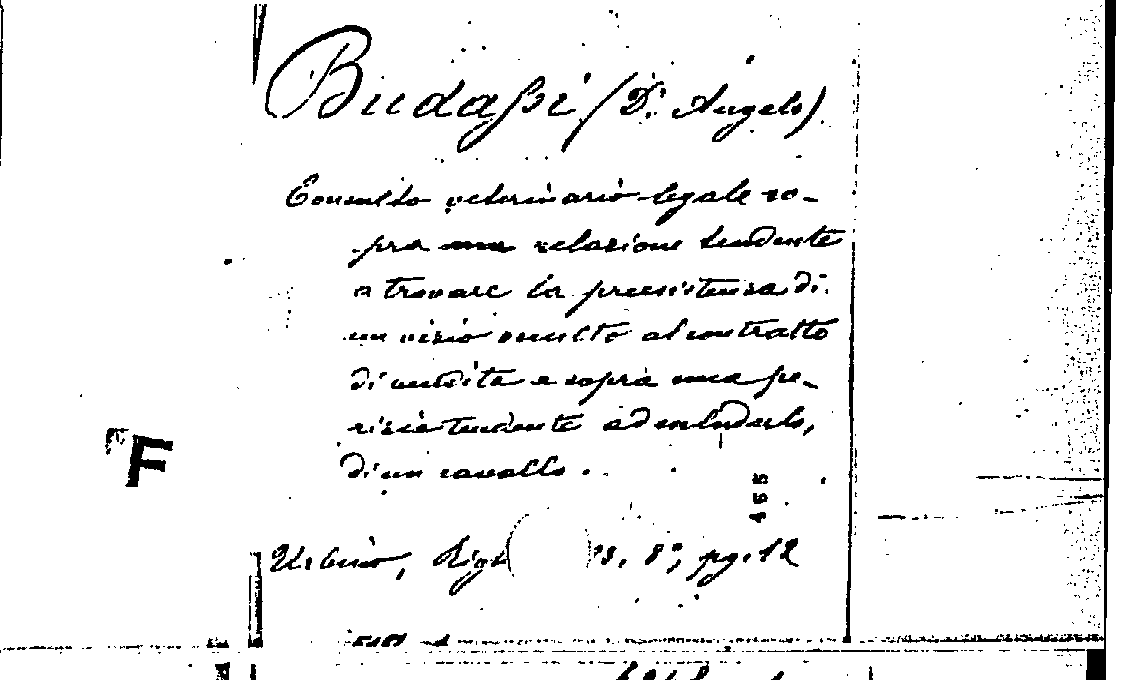 Budassi (D.r Angelo)
Consulto veterinario-legale so-
pra una relazione tendente
a trovare la preesistenza di
un vizio occulto al contratto
di vendita e sopra una pe-
rizia tendente ad escluderlo,
di un cavallo.
F
155
Urbino, 8°, pg. 12